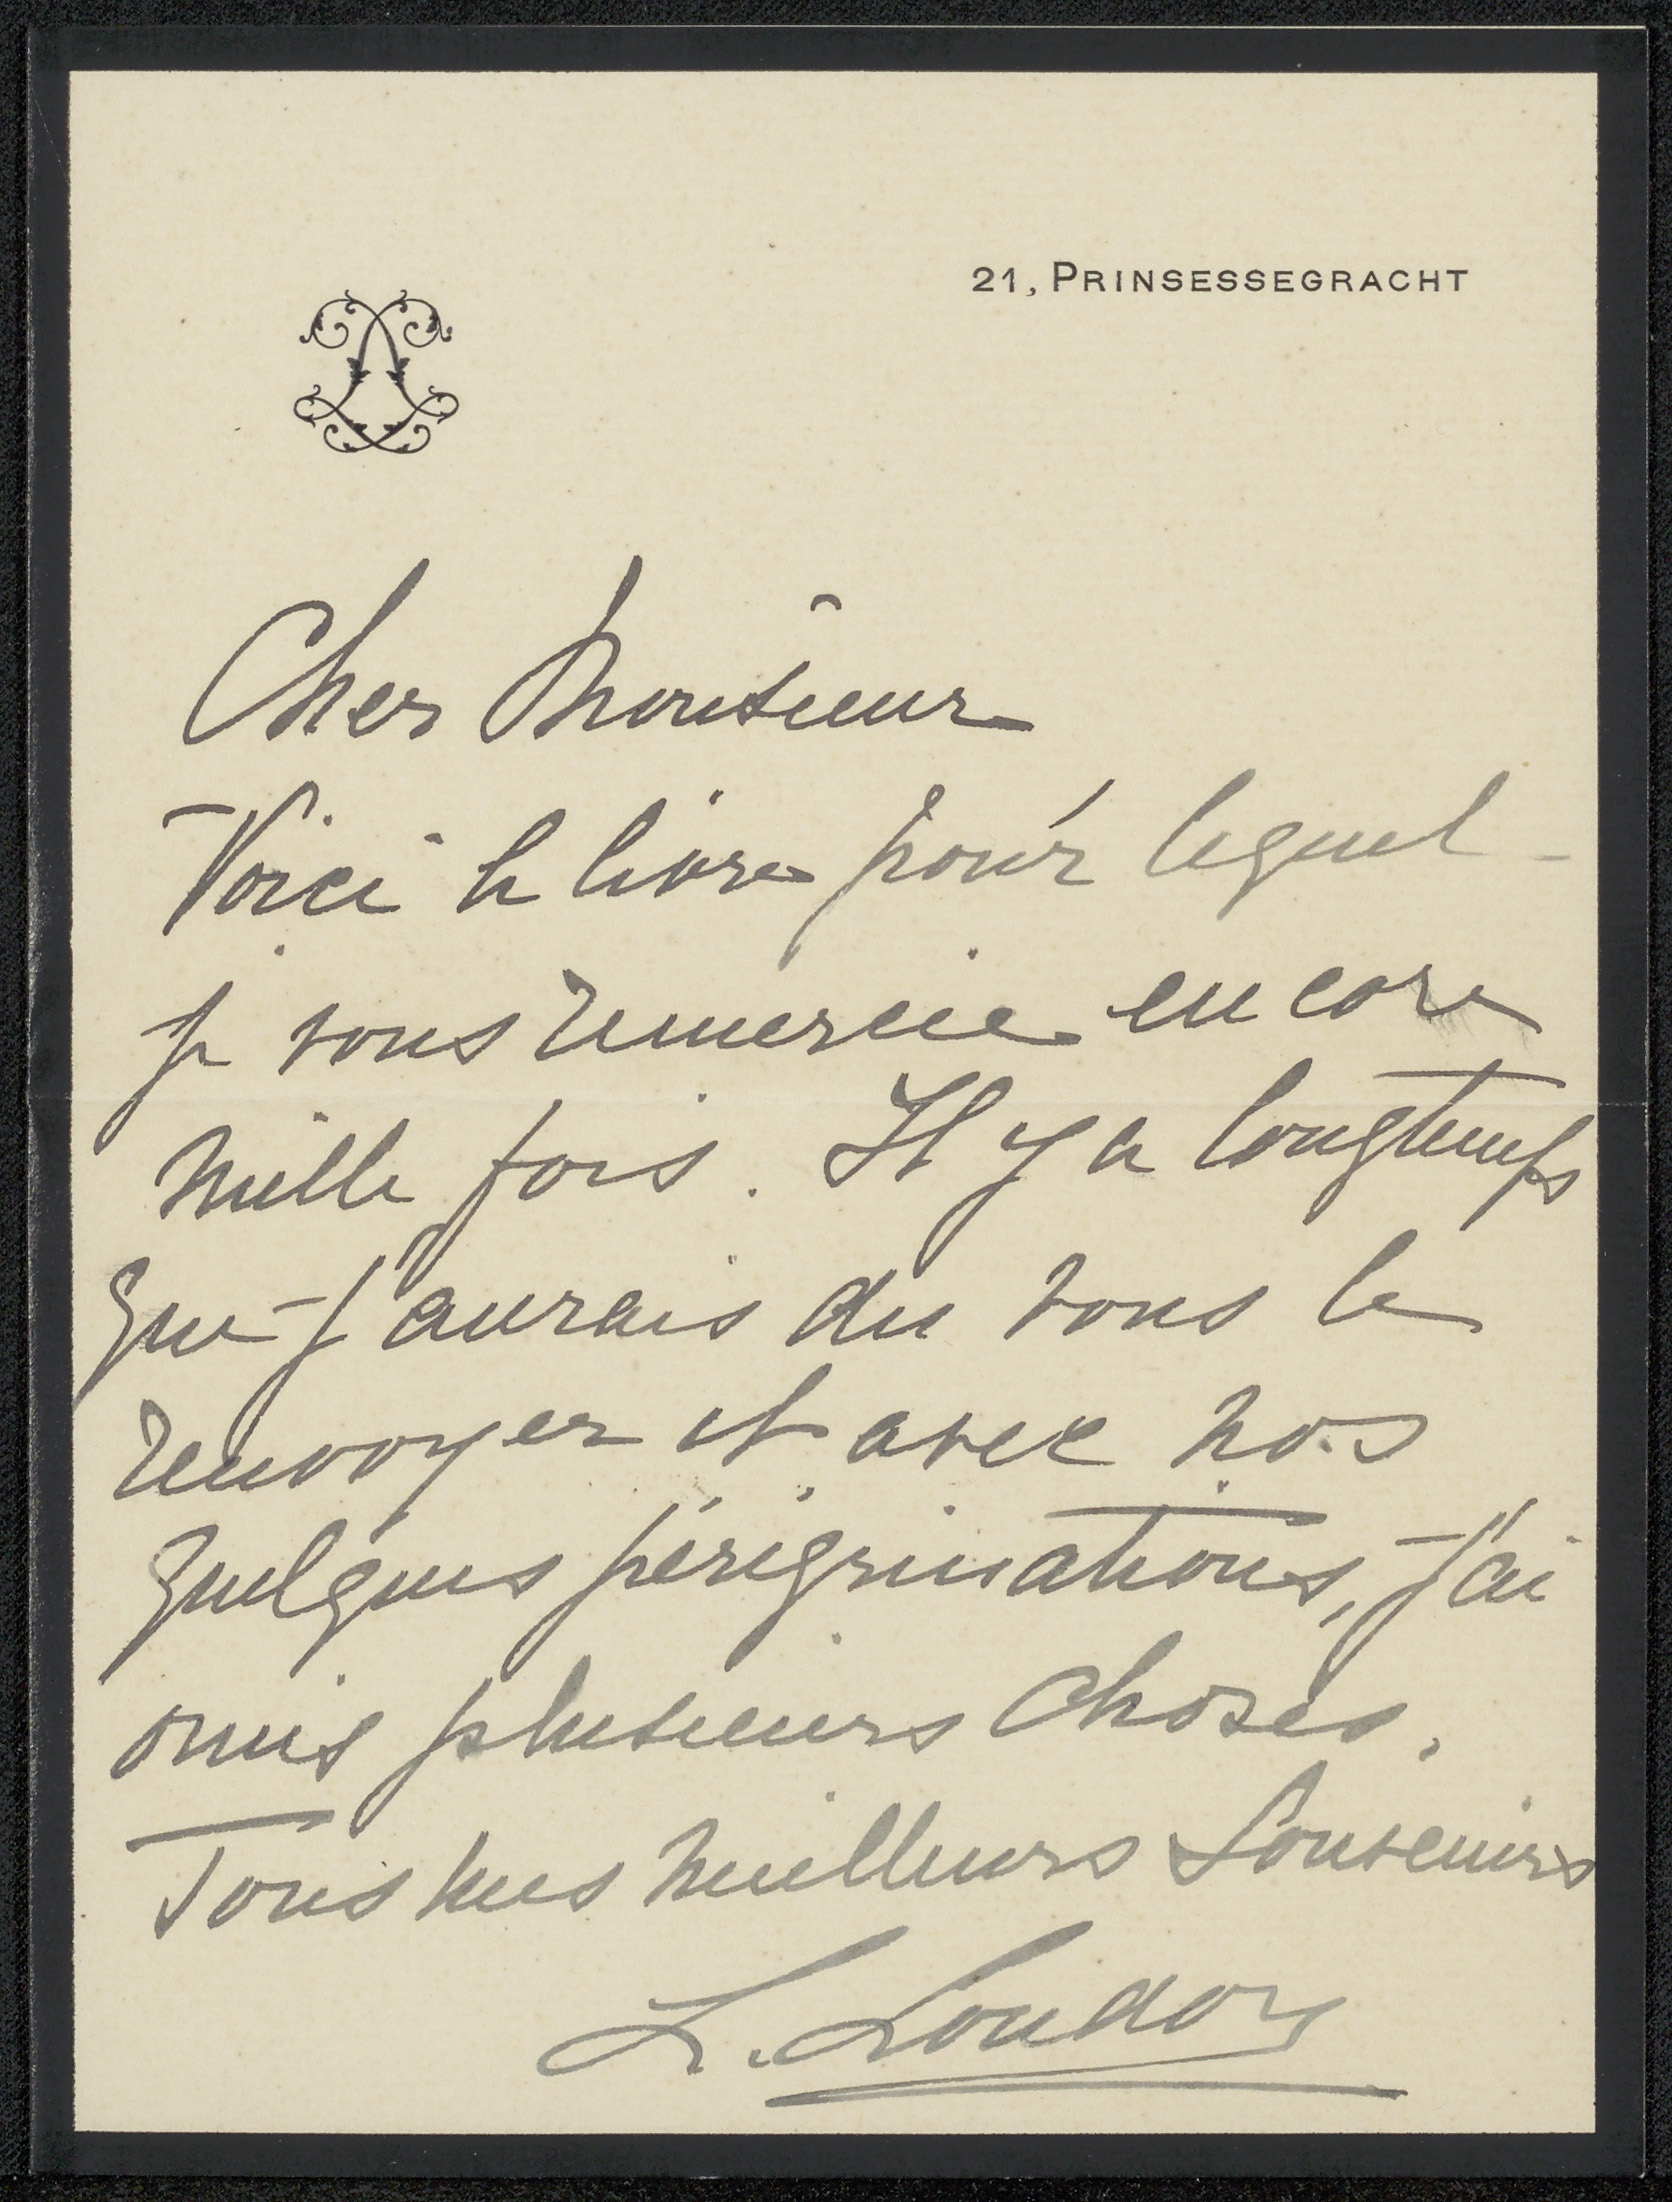 21, PRINSESSEGRACHT
Cher Monsieur
Voici le livre pour lequel
je vous remercie encore
mille fois. Il y a longtemps
que j'aurais du vous le
renvoyer et avec nos
quelques pérégrinations, j'ai
omis plusieurs choses.
Tous mes meilleurs souvenirs
L. Loudon